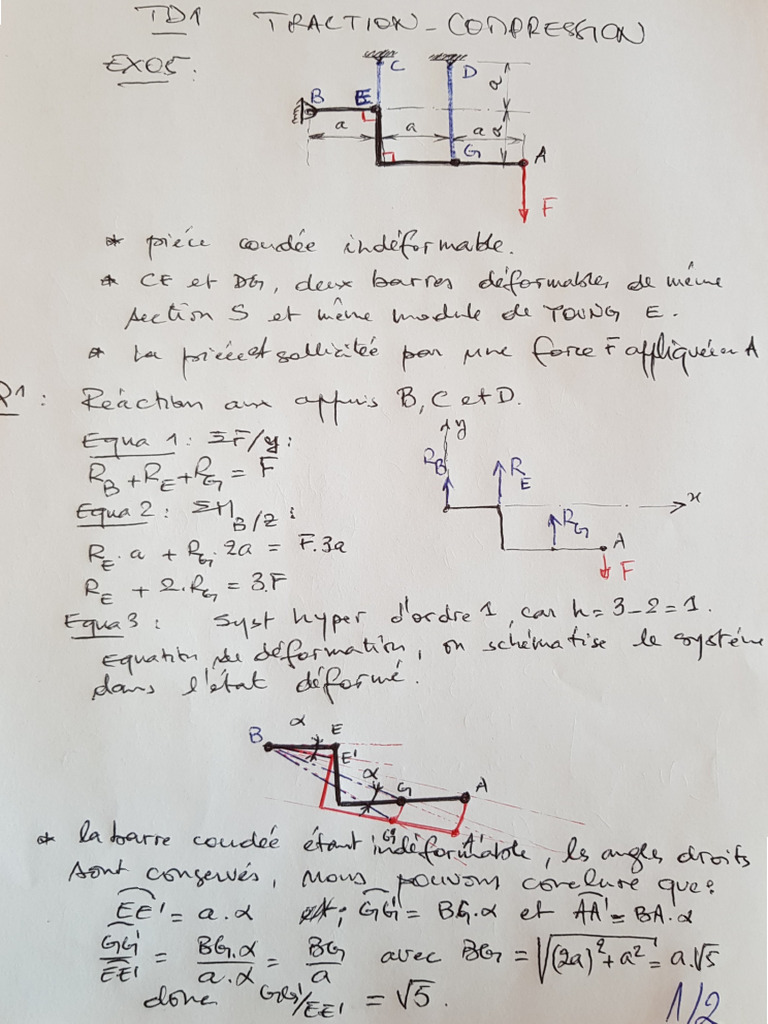 TD1 TRACTION - COMPRESSION
EXO5:
C
D
B
E
a
a
a
a
a
G
A
F
* piéce coudée indéformable.
* CE et DG, deux barres déformables de même
section S et même module de YOUNG E.
* La piéce est sollicitée par une force F appliquée en A
Q1: Réaction aux appuis B, C et D.
Equa 1: ΣF/y:
R_B + R_E + R_G = F
Equa 2: ΣM_B/Z:
R_E . a + R_G . 2a = F.3a
R_E + 2.R_G = 3.F
y
R_B
R_E
x
R_G
A
F
Equa 3: Syst hyper d'ordre 1, car h = 3-2 = 1.
Equation de déformation, on schématise le système
dans l'état déformé.
B
α
E
E'
α
G
A
G'
A'
* la barre coudée étant indéformable, les angles droits
sont conservés, nous pouvons conclure que:
EE' = a.α ; GG' = BG.α et AA' = BA.α
GG'/EE' = BG.α/a.α = BG/a avec BG = √(2a)² + a² = a.√5
donc GG'/EE' = √5.
1/2